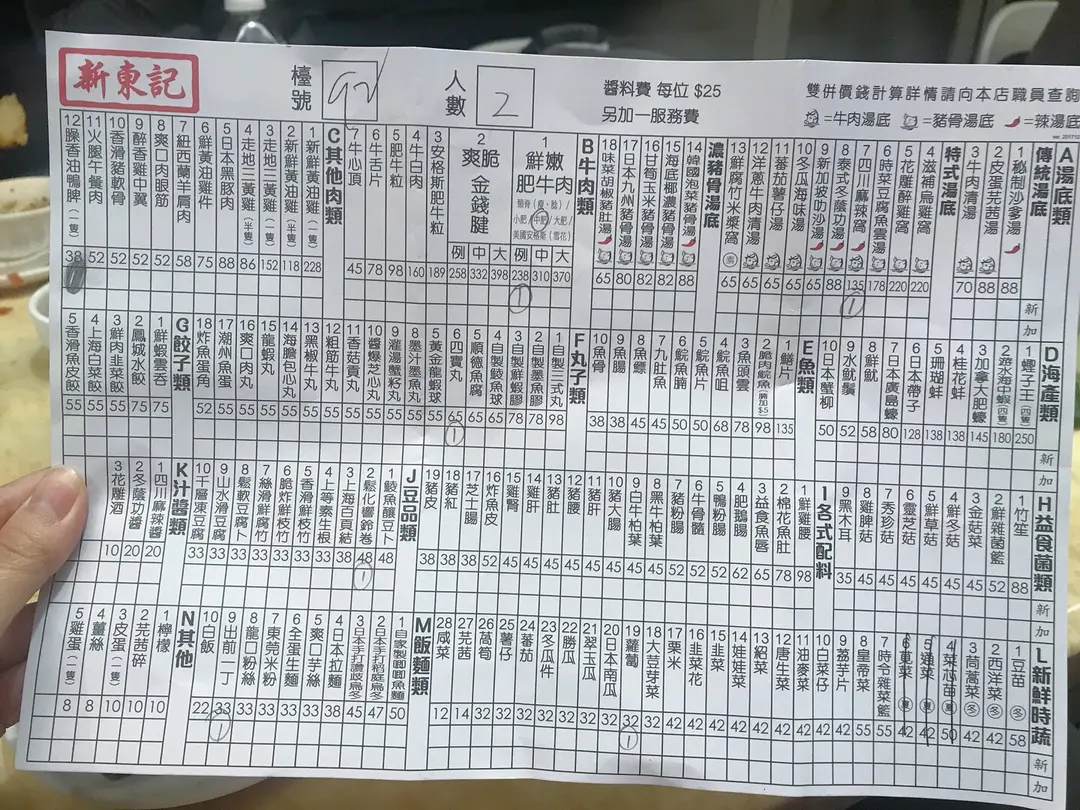 新東記
檯號 92
人數 2
醬料費 每位 $25
另加一服務費
雙併價錢計算詳情請向本店職員查詢
=牛肉湯底 =豬骨湯底 =辣湯底
A湯底類
傳統湯底
1秘制沙爹湯 88
2皮蛋芫茜湯 88
3牛肉清湯 70
特式湯底
4滋補烏雞湯 220
5花雕醉雞湯 220
6時菜豆腐魚雲湯 178
7四川麻辣窩 135 1
8泰式冬蔭功湯 88
9新加坡叻沙湯 65
10冬瓜海味湯 65
11蕃茄薯仔湯 65
12洋蔥牛肉清湯 65
13鮮腐竹米漿窩 素 65
濃豬骨湯底
14韓國泡菜豬骨湯 88
15海底椰濃豬骨湯 82
16甘筍玉米豬骨湯 82
17日本九州豬骨湯 80
18味菜胡椒豬肚湯 65
B牛肉類
1鮮嫩肥牛肉
小肥/中肥/大肥/
美國安格斯(雪花)
大 370
中 310
例 238 1
2爽脆金錢腱
大 398
中 332
例 258
3安格斯肥牛粒 189
4牛白肉 160
5肥牛粒 98
6牛舌片 78
7牛心頂 45
C其他肉類
1新鮮黃油雞(一隻) 228
2新鮮黃油雞(半隻) 118
3走地三黃雞(一隻) 152
4走地三黃雞(半隻) 86
5日本黑豚肉 88
6鮮黃油雞件 75
7紐西蘭羊肩肉 58
8爽口肉眼筋 52
9醉香雞中翼 52
10香滑豬軟骨 52
11火腿午餐肉 52
12臊香油鴨脾(一隻) 38
新
加
D海產類
1蟶子王(四隻) 250
2游水海中蝦(四隻) 180
3加拿大肥蠔 145
4桂花蚌 138
5珊瑚蚌 138
6日本帶子 128
7日本廣島蠔 80
8鮮魷 58
9水魷鬚 52
10日本蟹柳 50
E魚類
1鱔片 135
2脆肉鯇魚(需加$5) 98
3魚頭雲 78
4鯇魚咀 68
5鯇魚片 50
6鯇魚腩 50
7九肚魚 45
8魚鰾 45
9魚腸 38
10魚骨 38
F丸子類
1自製三式丸 98
2自製墨魚膠 78
3自製鮮蝦膠 78
4自製鯪魚球 65
5順德魚腐 65
6四寶丸 65 1
5黃金龍蝦球 55
8墨汁墨魚丸 55
9灌湯蟹籽丸 55
10醬爆芝心丸 55
11香菇貢丸 55
12粗筋牛丸 55
13黑椒牛丸 55
14海膽包心丸 55
15龍蝦丸 55
16爽口肉丸 55
17潮州魚蛋 55
18炸魚蛋角 52
G餃子類
1鮮蝦雲吞 75
2鳳城水餃 75
3鮮肉韭菜餃 55
4上海白菜餃 55
5香滑魚皮餃 55
新
加
H益食菌類
1竹笙 88
2鮮雜菌籃 52
3金菇菜 45
4鮮冬菇 45
5鮮草菇 45
6靈芝菇 45
7秀珍菇 45
8雞脾菇 45
9黑木耳 35
I各式配料
1鮮雞腰 98
2棉花魚肚 78
3益食魚唇 65
4肥鵝腸 62
5鴨粉腸 52
6牛骨髓 52
7豬粉腸 52
8黑牛柏葉 45
9白牛柏葉 45
10豬大腸 45
11豬肝 45
12豬肚 45
13豬肚 45
14雞肝 45
15雞腎 45
16炸魚皮 52
17芝士腸 38
18豬紅 38
19豬皮 38
J豆品類
1鯪魚釀豆卜 48
2鬆化響鈴卷 48 1
3上海百頁結 38
4上等素生根 33
5香滑鮮枝竹 33
6脆炸鮮枝竹 33
7絲滑鮮腐竹 33
8鬆軟豆腐卜 33
9山水滑豆腐 33
10千層凍豆腐 33
K汁醬類
1四川麻辣醬 20
2冬蔭功醬 20
3花雕酒 10
新
加
L新鮮時蔬
1豆苗 冬 58
2西洋菜 冬 42
3茼蒿菜 冬 42
4菜芯苗 夏 50
5通菜 夏 42
6莧菜 夏 42
7時令雜菜籃 55
8皇帝菜 55
9荔芋片 42
10白菜仔 42
11油麥菜 42
12唐生菜 42
13紹菜 42
14娃娃菜 42
15韭菜 42
16韭菜花 42
17粟米 42
18大荳芽菜 32
19蘿蔔 32 1
20日本南瓜 32
21翠玉瓜 32
22勝瓜 32
23冬瓜件 32
24蕃茄 32
25薯仔 32
26萵筍 32
27芫茜 14
28咸菜 12
M飯麵類
1自家製唧唧魚麵 50
2日本手打稻庭烏冬 47
3日本手打讚歧烏冬 45
4日本拉麵 38
5爽口芋絲 33
6全蛋生麵 33
7東莞米粉 33
8龍口粉絲 33
9出前一丁 33 1
10白飯 22
N其他
1檸檬 10
2芫茜碎 10
3皮蛋(一隻) 10
4薑絲 8
5雞蛋(一隻) 8
新
加